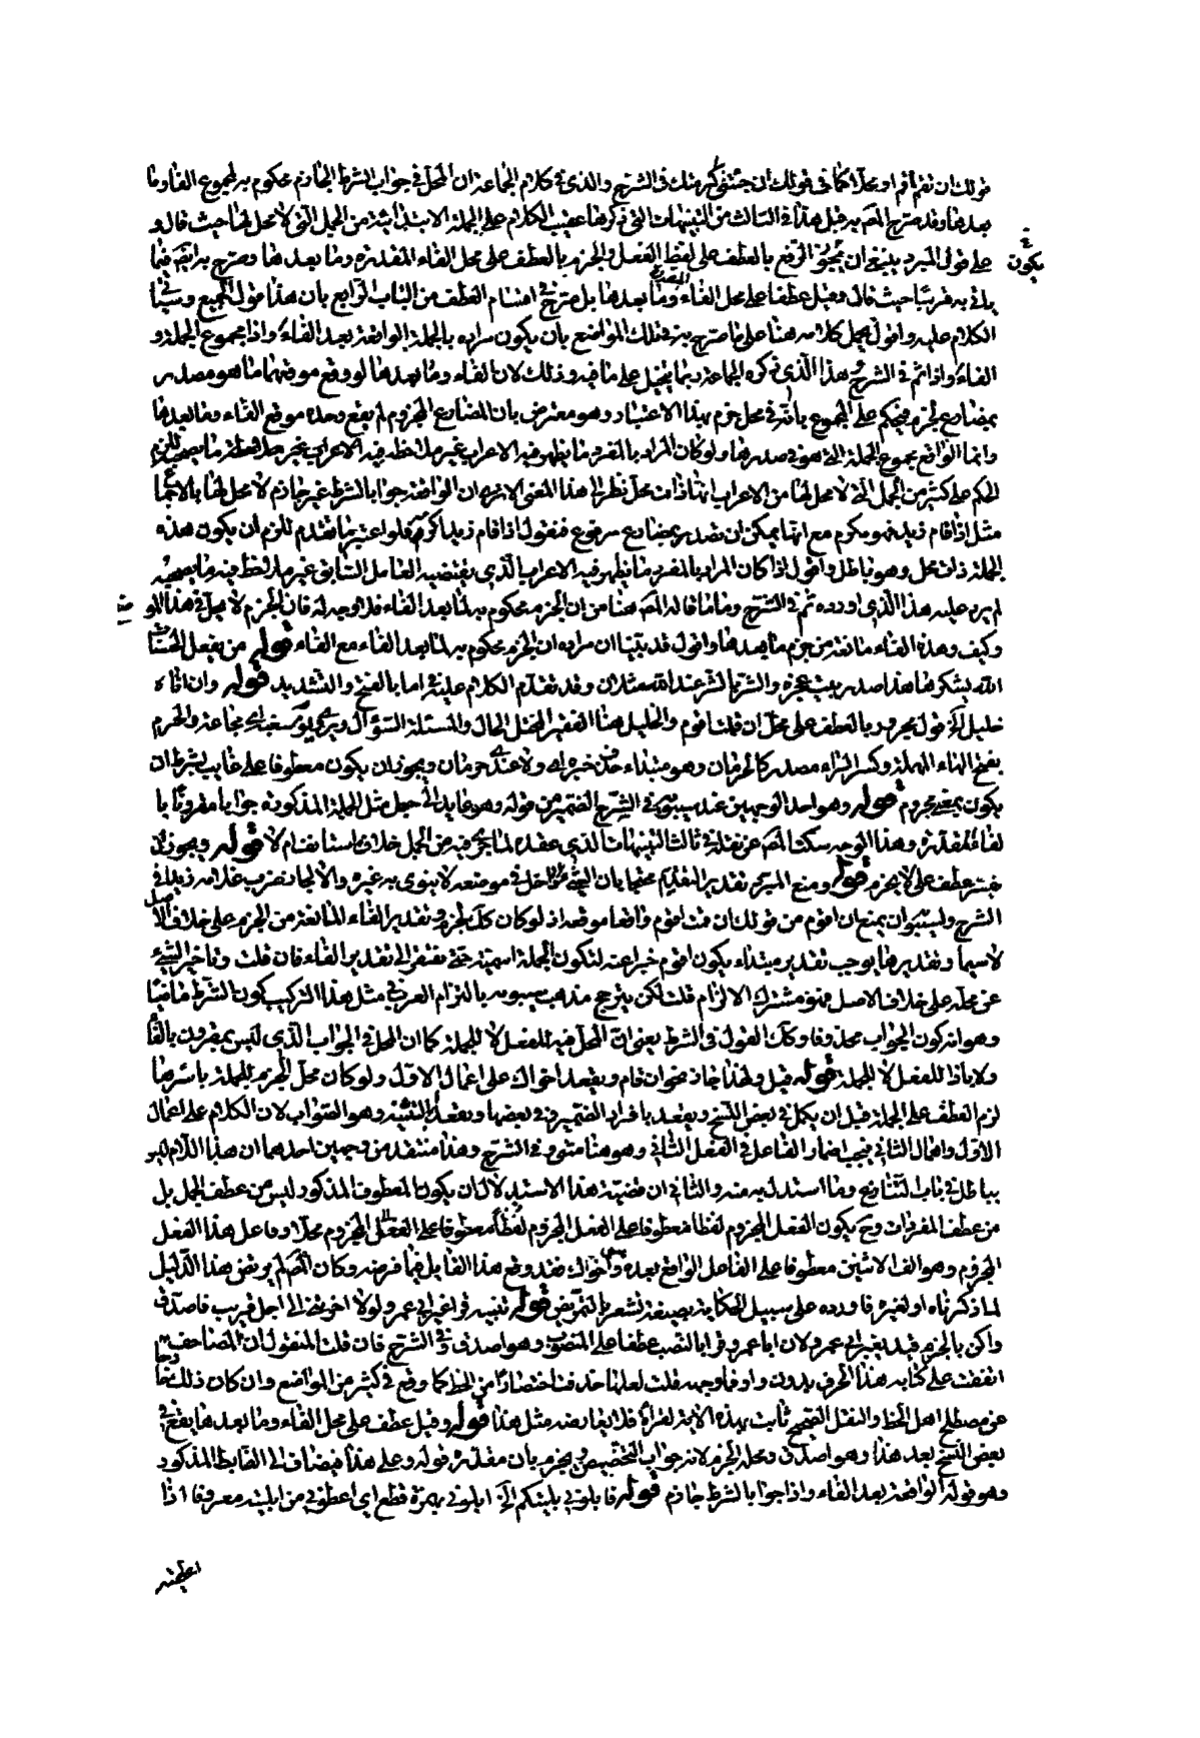 قولك ان تقم اقم او محلا كما في قولك ان جئتني اكرمتك وفي الشرح والذي في كلام الجماعة ان المحل في جواب الشرط الجازم محكوم به لمجموع الفاء وما
بعدها وقد صرح المص به قبل هذا في الثالث من التنبيهات التي ذكرها عقيب الكلام على الجملة الابتدائية من الجمل التي لا محل لها حيث قال و
على قول المبرد ينبغي ان يجوز الرفع بالعطف على لفظ الفعل والجزم بالعطف على محل الفاء المقدرة وما بعدها وصرح به ايضا فيما
يكون
ياتي به قريبا حيث قال وقيل عطفا على محل الفاء وما بعدها بل صرح في اقسام العطف من الباب الرابع بان هذا قول الجميع وسياتي
الكلام عليه واقول يحمل كلامه هنا على ما صرح به في تلك المواضع بان يكون مراده بالجملة الواقعة بعد الفاء واذا مجموع الجملة و
الفاء واذا ثم في الشرح وهذا الذي ذكره الجماعة ربما يخيل على ما فيه وذلك لان الفاء وما بعدها لو وقع موقعهما ما هو مصدر
بمضارع لجزم فيحكم على المجموع بانه في محل جزم بهذا الاعتبار وهو معترض بان المضارع المجزوم لم يقع وحده موقع الفاء وما بعدها
وانما الواقع مجموع الجملة التي هو في صدرها ولو كان المراد بالمفرد ما يظهر فيه الاعراب غير ملاحظ فيه الاعراب
الحكم على كثير من الجمل التي لا محل لها من الاعراب انها ذات محل نظرا لهذا المعنى الا ترى ان الواقعة جوابا لشرط غير جازم لا محل لها بالاجماع
مثل اذا قام زيد فهو مكرم مع انها يمكن ان تصدر بمضارع مرفوع فنقول اذا قام زيد اكرم فلو اعتبر ما تقدم للزم ان يكون هذه
الجملة ذات محل وهو باطل واقول اذا كان المراد بالمفرد ما يظهر فيه الاعراب الذي يقتضيه العامل السابق غير ملاحظ فيه
لم يرد عليه هذا الذي اورده ثم في الشرح وما ما قاله المص هنا من ان الجزم محكوم به لما بعد الفاء فلا وجه له فان الجزم لا محل في هذا المو
ضع
وكيف وهذه الفاء مانعة من جزم ما بعدها واقول قد بينا ان مراده ان الجزم محكوم به لما بعد الفاء مع الفاء قوله من يفعل الحسنات
الله يشكرها هذا صدر بيت عجزه والشر بالشر عند الله مثلان وقد تقدم الكلام عليه في اما بالفتح والتشديد قوله وان اتاه
خليل الخ قول مجرور بالعطف على محل ان قلنا قوم والخليل هنا الفقير المختل الحال والمسئلة السؤال ويروى يوم مسغبة اي مجاعة والحرم
بفتح الحاء المهملة وكسر الراء مصدر كالحرمان وهو مبتداء حذف خبره اي ولا عندي حرمان ويجوز ان يكون معطوفا على غايب بشرط ان
يكون بمعنى محروم قوله وهو احد الوجهين عند سيبويه في الشرح الضمير من قوله وهو عايد الى جعل مثل الجملة المذكورة جوابا مقرونا با
لفاء المقدرة وهذا الوجه سكت المص عن نقله في ثالث التنبيهات الذي عقده لما يجري فيه من الجمل خلاف استانف ام لا قوله ويجوز ان
يفسر عطف على لا يجزم قوله ومنع المبرد تقدير التقديم محتجا بان الشيء اذا حل في موضعه لا ينوى به غيره والا لجاز ضرب غلامه زيدا في
الشرح ولسيبويه ان يمنع ان اقوم من قولك ان قمت اقوم واقعا موقعه اذ لو كان كذلك لجزم وتقدير الفاء المانعة من الجزم على خلاف الاصل
لا سيما وتقديرها يوجب تقدير مبتداء يكون اقوم خبرا عنه لتكون الجملة اسمية حتى تفتقر الى تقدير الفاء فان قلت وتاخير الشيء
عن محله على خلاف الاصل فهو مشترك الالزام قلت لكن يترجح مذهب سيبويه بالتزام العرب في مثل هذا التركيب كون الشرط ماضيا
وهو امر كون الجواب محذوفا وكذا القول في الشرط يعني ان المحل فيه للفعل لا للجملة كما ان المحل في الجواب الذي ليس بمقرون بالفاء
ولا باذا للفعل لا للجملة قوله قيل ولهذا جاز نحو ان قام ويقعد اخواك على اعمال الاول ولو كان محل الجزم للجملة باسرها
لزم العطف على الجملة قبل ان تكمل في بعض النسخ ويقعد بافراد الضمير وفي بعضها ويقعدا بالتثنية وهو الصواب لان الكلام على اعمال
الاول واهمال الثاني فيجب اضمار الفاعل في الفعل الثاني وهو هنا مثنى وفي الشرح وهذا منتقد من وجهين احدهما ان هذا الكلام ليس
بباطل في باب التنازع وما استدل به منه والثاني ان قضية هذا الاستدلال ان يكون المعطوف المذكور ليس من عطف الجمل بل
من عطف المفردات وح يكون الفعل المجزوم لفظا معطوفا على الفعل المجزوم محلا وفاعل هذا الفعل
المجزوم وهو الف الاثنين معطوفا على الفاعل الواقع بعده وهو اخواك فقد وقع هذا القايل فيما فر منه وكان المص لم يرتض هذا الدليل
لما ذكرناه او لغيره فاورده على سبيل الحكاية بصيغة تشعر بالتمريض قوله تنبيه قرا غير ابي عمرو لولا اخرتني الى اجل قريب فاصدق
واكن بالجزم قيد بغير ابي عمرو لان ابا عمرو قرا بالنصب عطفا على المنصوب وهو اصدق وفي الشرح فان قلت المنقول ان المصاحف
اتفقت على كتابة هذا الحرف بدون واو فما وجهه قلت لعلها حذفت اختصارا من الخط كما وقع في كثير من المواضع وان كان ذلك خارجا
عن مصطلح اهل الخط والنقل الصحيح ثابت بهذه الاية لقراءة فلا يعارضه مثل هذا قوله وقيل عطف على محل الفاء وما بعدها يقع في
بعض النسخ بعد هذا وهو اصدق ومحله الجزم لانه جواب التحضيض ويجزم بان مقدرة قوله وعلى هذا فيضاف الى الضابط المذكور
وهو قوله الواقعة بعد الفاء واذا جوابا لشرط جازم قوله فابلوني بليتكم الخ ابلوني بهمزة قطع اي اعطوني من ابليته معروفا اذا
اعطيته